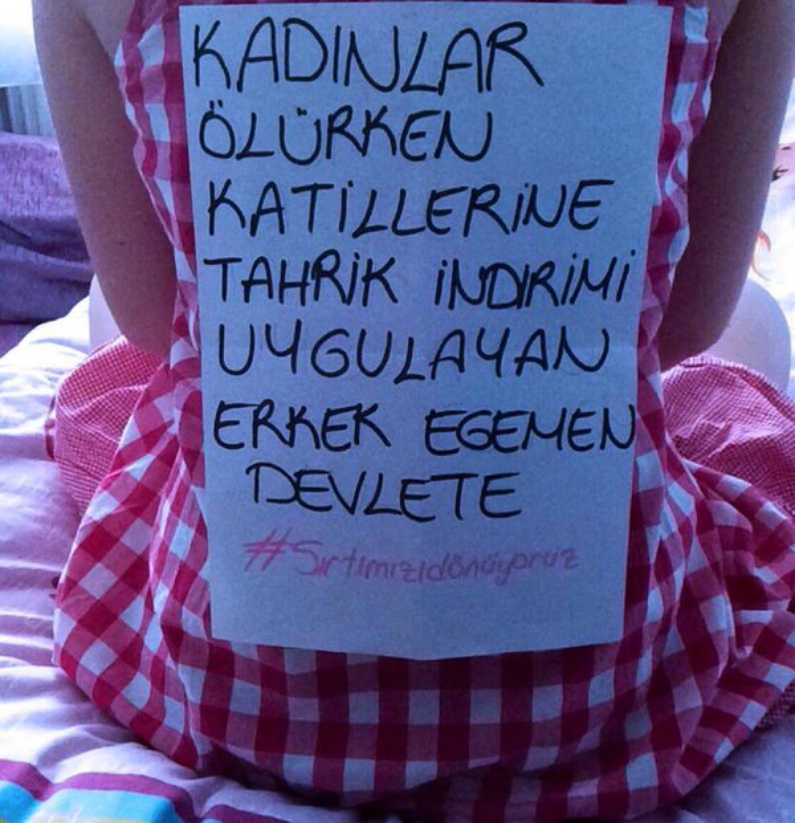 KADINLAR
ÖLÜRKEN
KATİLLERİNE
TAHRİK İNDİRİMİ
UYGULAYAN
ERKEK EGEMEN
DEVLETE
#Sırtımızıdönüyoruz